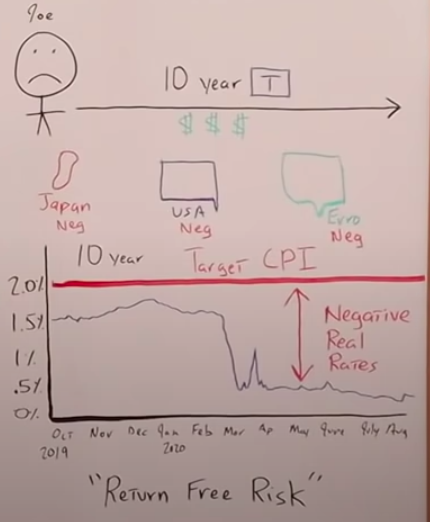 Joe
10 year T
$ $ $
Japan
Neg
USA
Neg
Euro
Neg
10 year Target CPI
2.0%
1.5%
1%
.5%
0%
Negative
Real
Rates
Oct Nov Dec Jan Feb Mar Ap May June July Aug
2019 2020
"Return Free Risk"